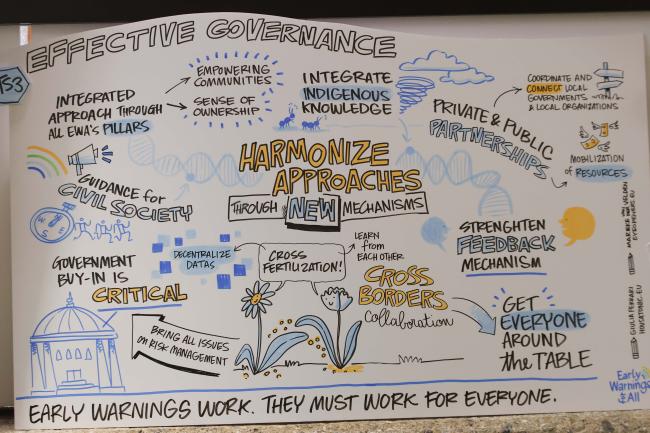 EFFECTIVE GOVERNANCE
TS3
INTEGRATED
APPROACH THROUGH
ALL EWA'S PILLARS
EMPOWERING
COMMUNITIES
SENSE OF
OWNERSHIP
INTEGRATE
INDIGENOUS
KNOWLEDGE
PRIVATE & PUBLIC
PARTNERSHIPS
COORDINATE AND
CONNECT LOCAL
GOVERNMENTS
& LOCAL ORGANIZATIONS
MOBILIZATION
of RESOURCES
GUIDANCE for
CIVIL SOCIETY
HARMONIZE
APPROACHES
THROUGH NEW MECHANISMS
STRENGHTEN
FEEDBACK
MECHANISM
GOVERNMENT
BUY-IN IS
CRITICAL
DECENTRALIZE
DATAS
CROSS
FERTILIZATION!
LEARN
from
EACH OTHER
CROSS
BORDERS
Collaboration
GET
EVERYONE
AROUND
the TABLE
BRING ALL ISSUES
ON RISK MANAGEMENT
GIULIA FERRARI
Early
Warnings
All
EARLY WARNINGS WORK. THEY MUST WORK FOR EVERYONE.